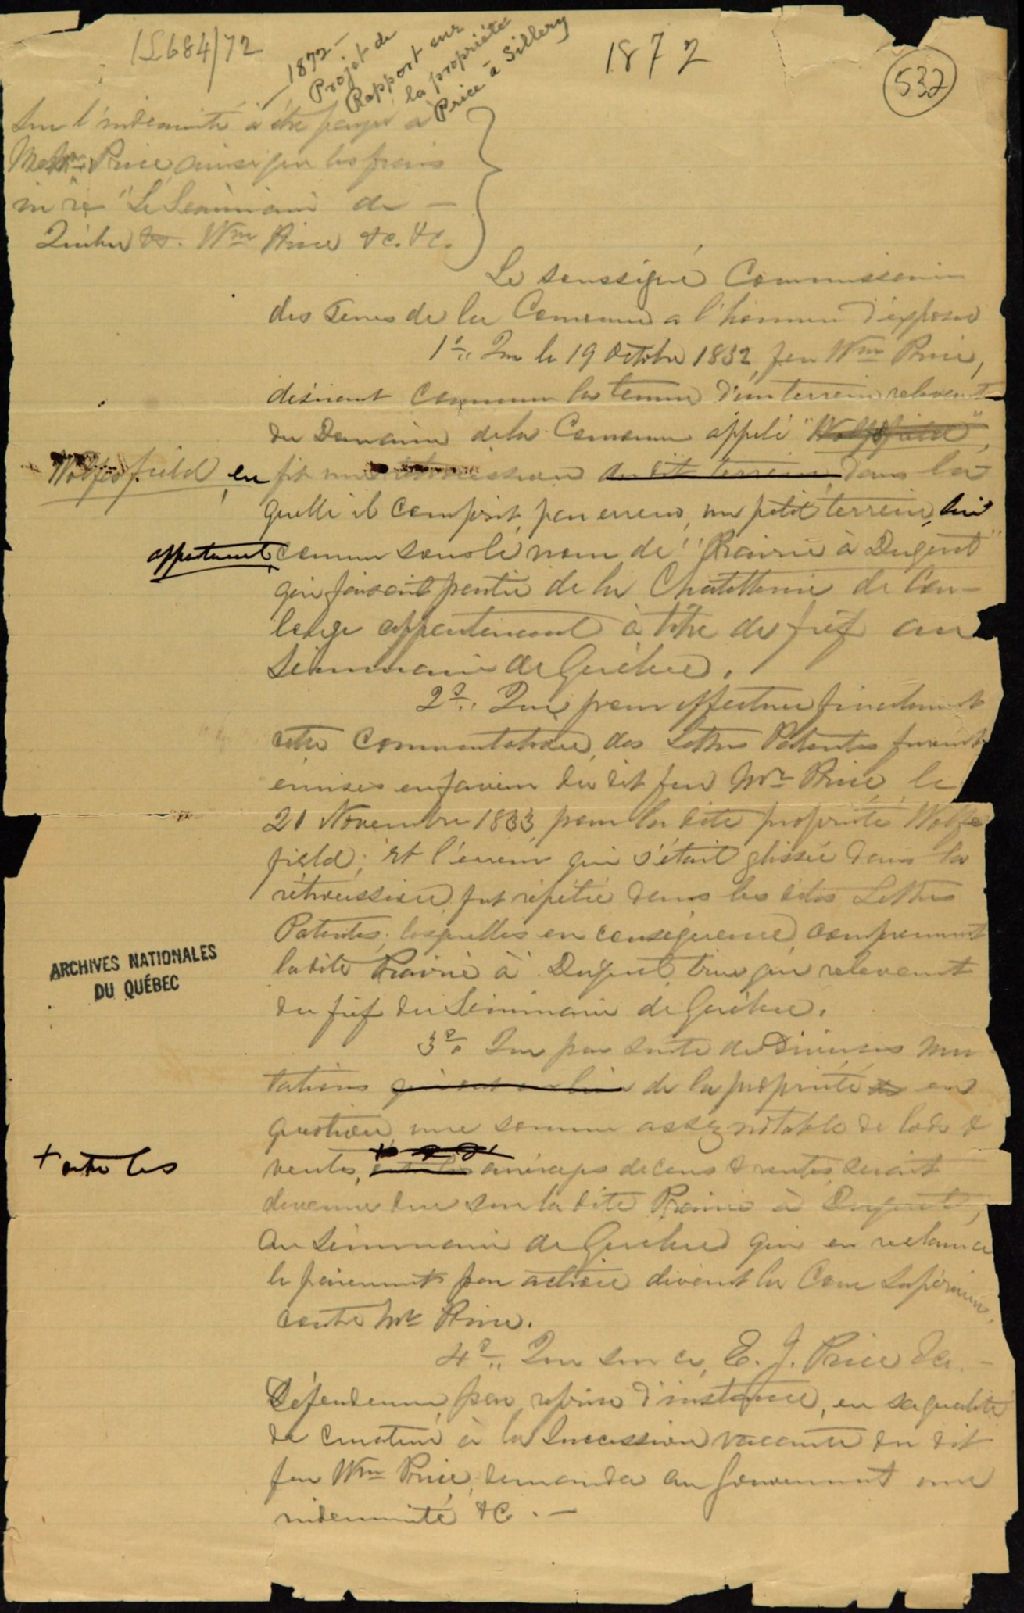 15684/72
1872 -
Projet de
Rapport sur
la propriété
Price à Sillery
1872
532
Sur l'indemnité à être payée à
Price, ainsi que les frais
in re "Le Séminaire de -
Québec vs. Wm Price &c. &c.
Le soussigné Commissaire
des Terres de la Couronne a l'honneur d'exposer
1o. Que le 19 Octobre 1832, feu Wm Price,
désirant commuer la tenure d'un terrain relevant
du Domaine de la Couronne appelé "Wolfesfield",
Wolfesfield, en fit une rétrocession du dit terrain, dans la
quelle il comprit, par erreur, un petit terrain,
appartenant connu sous le nom de "Prairie à Duguet"
qui faisait partie de la Chatellenie de Cou-
longe appartenant à titre de fief au
Séminaire de Québec.
2o. Que pour effectuer finalement
cette commutation, des Lettres Patentes furent
émises en faveur du dit feu Mr Price, le
21 Novembre 1833, pour la dite propriété Wolfe
field; et l'erreur qui s'était glissée dans la
rétrocession fut répétée dans les dites Lettres
Patentes, lesquelles en conséquence, comprennent
la dite Prairie à Duguet, bien que relevant
du fief du Séminaire de Québec.
ARCHIVES NATIONALES
DU QUÉBEC
3o. Que par suite de diverses mu
tations de la propriété en
question, une somme assez notable de lods &
+ outre les
ventes, arrérages de cens & rentes serait
devenue due sur la dite Prairie à Duguet,
au Séminaire de Québec qui en réclama
le paiement par action devant la Cour Supérieure,
contre Mr Price.
4o. Que sur ce, E. J. Price
Défendeur par reprise d'instance, en sa qualité
de curateur à la succession vacante du dit
feu Wm Price, demanda au Gouvernement une
indemnité &c. -